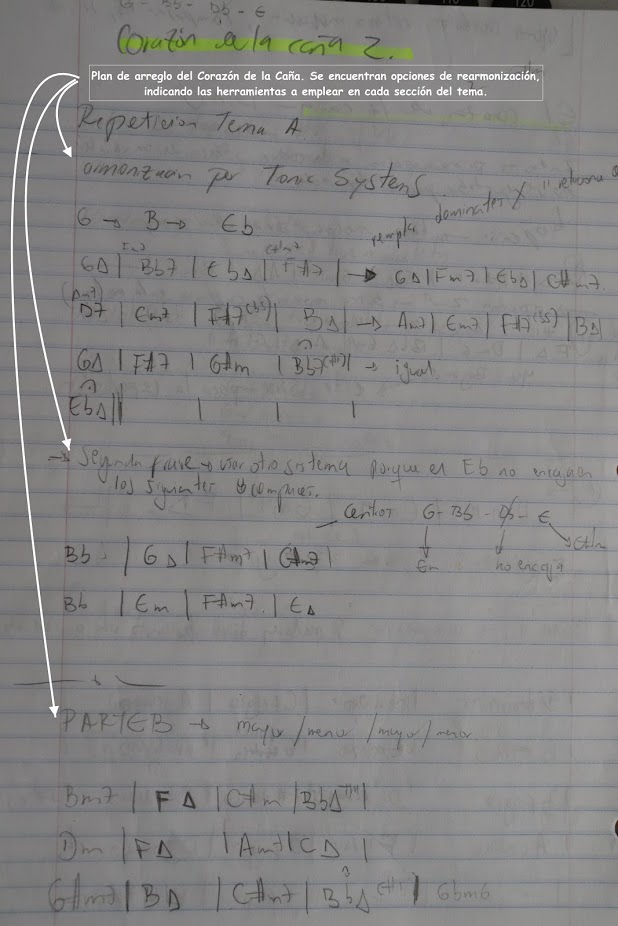 G - Bb - Db - E
Corazón de la caña 2.
Plan de arreglo del Corazón de la Caña. Se encuentran opciones de rearmonización,
indicando las herramientas a emplear en cada sección del tema.
Repeticion Tema A.
armonización por Tonic Systems
G → B → Eb
remplaza dominantes x "
Fm7 C#m7
GΔ | Bb7 | EbΔ | F#7 | → GΔ | Fm7 | EbΔ | C#m7.
(Am7)
D7 | Em7 | F#7(b5) | BΔ | → Am7 | Em7 | F#7(b5) | BΔ
GΔ | F#7 | G#m | Bb7 | → igual.
EbΔ || | | |
→ Segunda frase → usar otro sistema porque el Eb no encajaen
los siguientes 8 compases.
Centros G - Bb - Db - E
Bb | GΔ | F#m7 | C#m7 | Em no encaja C#m
Bb | Em | F#m7. | EΔ
PARTE B → mayor / menor / mayor / menor
Bm7 | FΔ | C#m | BbΔ |
Dm | FΔ | Am7 | CΔ |
G#m7 | BΔ | C#m7 | BbΔ | Gbm6